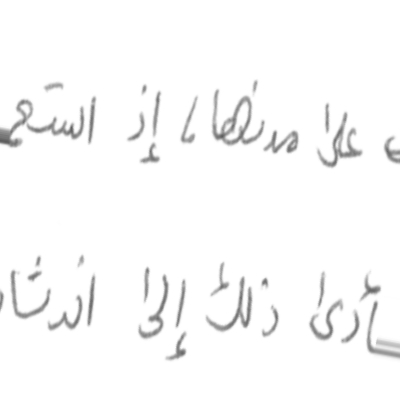 على مدنها، إذ استعم
أدى ذلك إلى اندثا